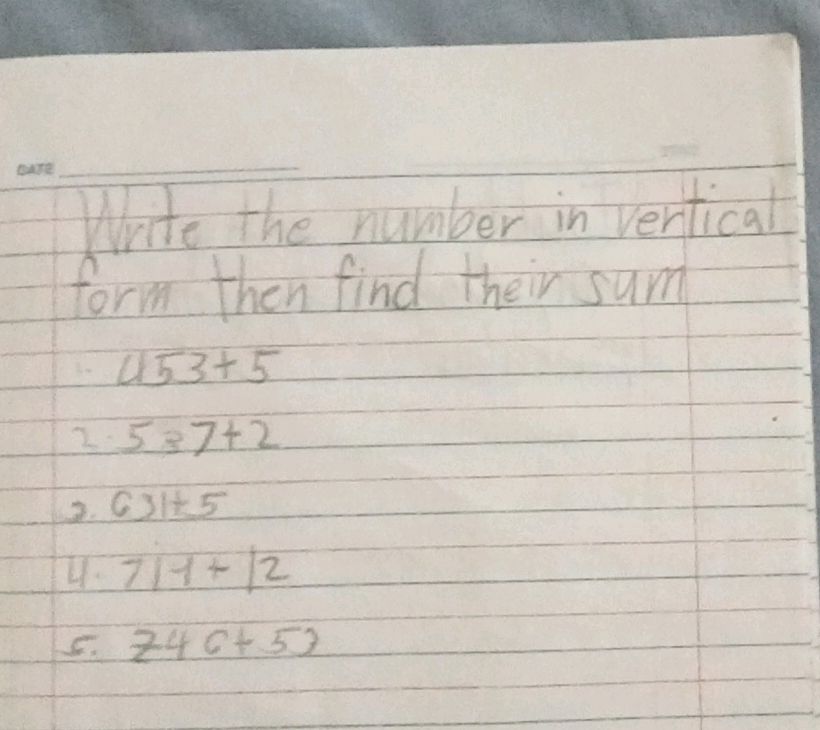 DATE
Write the number in vertical
form then find their sum
1. 453+5
2. 537+2
3. 631+5
4. 714+12
5. 746+53